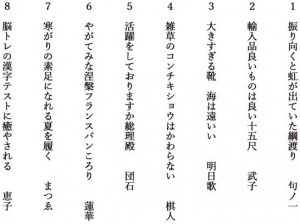 1　振り向くと虹が出ていた綱渡り　句ノ一
2　輸入品良いものは良い十五尺　武子
3　大きすぎる靴　海は遠いい　明日歌
4　雑草のコンチキショウはかわらない　棋人
5　活躍をしておりますか総理殿　団石
6　やがてみな涅槃フランスパンころり　蓮華
7　寒がりの素足になれる夏を履く　まつゑ
8　脳トレの漢字テストに癒やされる　恵子